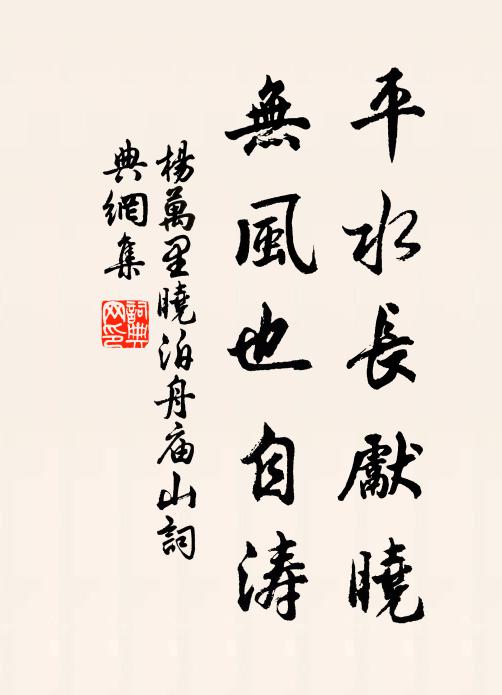 平水長獻曉
無風也自涛
楊萬里曉泊舟庙山詞
典網集
詞典
网印